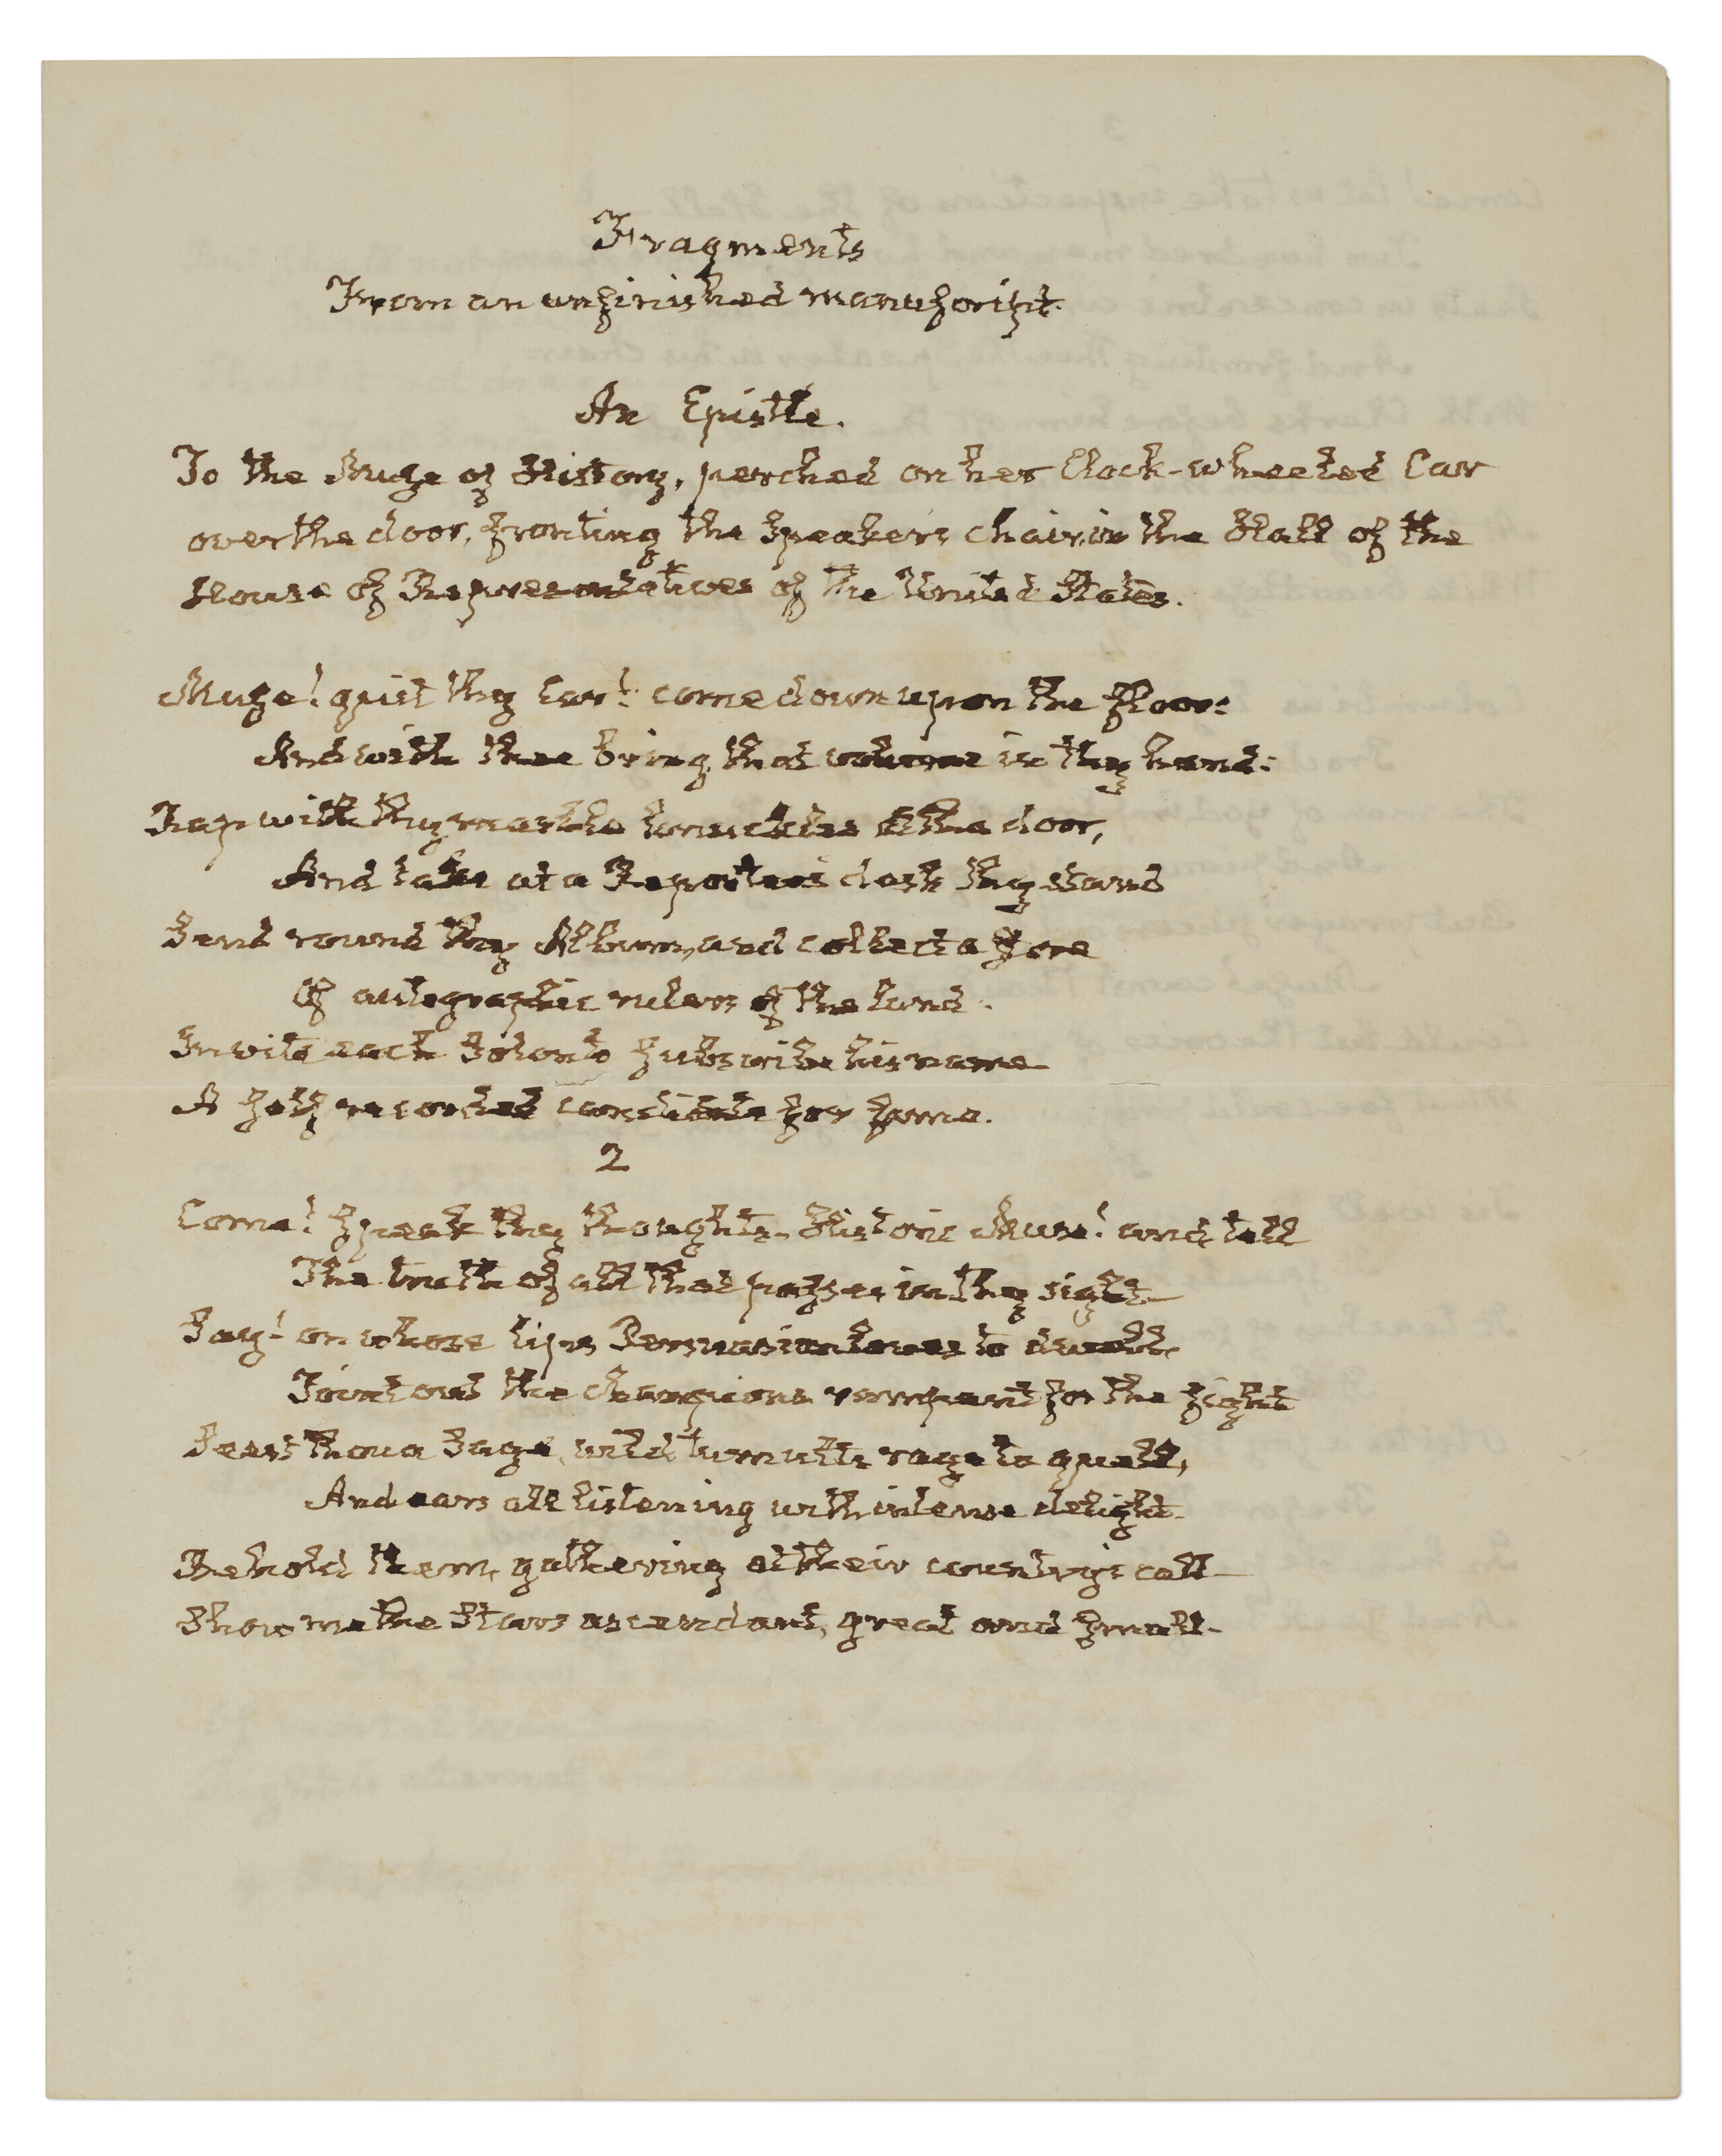 Fragments
From an unfinished manuscript.
An Epistle.
To the Muse of History, perched on her Clock-wheeled Car
over the door, fronting the Speaker's chair, in the Hall of the
House of Representatives of the United States.
Muse! quit thy Car! come down upon the floor:
And with thee bring that volume in thy hand:
Rap with thy marble knuckles at the door,
And take at a Reporter's desk thy stand
Send round thy Album, and collect a store
Of autographic rulers of the land.
Invite each Solon to subscribe his name
A self recorded candidate for fame.
2
Come! speak thy thoughts, Historic Muse! and tell
The truth of all that passes in thy sight—
Say! on whose lips Persuasion loves to dwell,
Point out the champions rampant for the fight
Seest thou a Sage, wild tumult's rage to quell,
And ears all listening with intense delight.
Behold them, gathering at their country's call—
Show me the Stars ascendant, great and small.